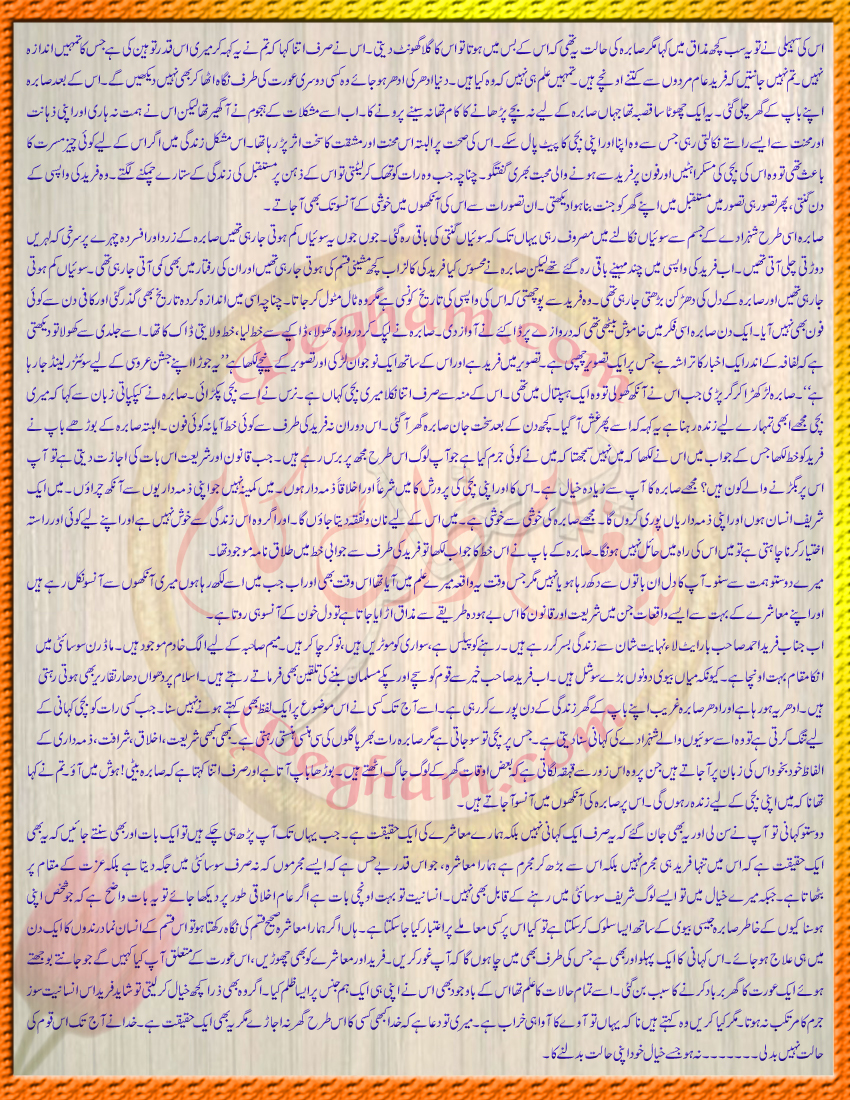 اس کی سہیلی نے تو یہ سب کچھ مذاق میں کہا مگر صابرہ کی حالت یہ تھی کہ اس کے بس میں ہوتا تو اس کا گلا گھونٹ دیتی۔ اس نے صرف اتنا کہا کہ تم نے یہ کہہ کر میری اس قدر توہین کی ہے جس کا تمہیں اندازہ
نہیں۔ تم نہیں جانتیں کہ فرید عام مردوں سے کتنے اونچے ہیں۔ تمہیں علم ہی نہیں کہ وہ کیا ہیں۔ دنیا ادھر کی ادھر ہو جائے وہ کسی دوسری عورت کی طرف نگاہ اٹھا کر بھی نہیں دیکھیں گے۔ اس کے بعد صابرہ
اپنے باپ کے گھر چلی گئی۔ یہ ایک چھوٹا سا قصبہ تھا جہاں صابرہ کے لیے نہ بچے پڑھانے کا کام تھا نہ سینے پرونے کا۔ اب اسے مشکلات کے ہجوم نے آ گھیر تھا لیکن اس نے ہمت نہ ہاری اور اپنی ذہانت
اور محنت سے ایسے راستے نکالتی رہی جس سے وہ اپنا اور اپنی بچی کا پیٹ پال سکے۔ اس کی صحت پر البتہ اس محنت اور مشقت کا سخت اثر پڑ رہا تھا۔ اس مشکل زندگی میں اگر اس کے لیے کوئی چیز مسرت کا
باعث تھی تو وہ اس کی بچی کی مسکراہٹیں اور فون پر فرید سے ہونے والی محبت بھری گفتگو۔ چنانچہ جب وہ رات کو تھک کر لیٹتی تو اس کے ذہن پر مستقبل کی زندگی کے ستارے چمکنے لگتے۔ وہ فرید کی واپسی کے
دن گنتی، پھر تصور ہی تصور میں مستقبل میں اپنے گھر کو جنت بنا ہوا دیکھتی۔ ان تصورات سے اس کی آنکھوں میں خوشی کے آنسو تک بھی آ جاتے۔
صابرہ اسی طرح شہزادے کے جسم سے سوئیاں نکالنے میں مصروف رہی یہاں تک کہ سوئیاں گنتی کی باقی رہ گئی۔ جوں جوں یہ سوئیاں کم ہوتی جا رہی تھیں صابرہ کے زرد اور افسردہ چہرے پر سرخی کی لہریں
دوڑتی چلی آتی تھیں۔ اب فرید کی واپسی میں چند مہینے باقی رہ گئے تھے لیکن صابرہ نے محسوس کیا فرید کی کالز اب کچھ مشینی قسم کی ہوتی جا رہی تھیں اور ان کی رفتار میں بھی کمی آتی جا رہی تھی۔ سوئیاں کم ہوتی
جا رہی تھیں اور صابرہ کے دل کی دھڑکن بڑھتی جا رہی تھی۔ وہ فرید سے پوچھتی کہ اس کی واپسی کی تاریخ کونسی ہے مگر وہ ٹال مٹول کر جاتا۔ چنانچہ اسی میں اندازہ کردہ تاریخ بھی گذر گئی اور کافی دن سے کوئی
فون بھی نہیں آیا۔ ایک دن صابرہ اسی فکر میں خاموش بیٹھی تھی کہ دروازے پر ڈاکئے نے آواز دی۔ صابرہ نے لپک کر دروازہ کھولا، ڈاکیے سے خط لیا، خط ولایتی ڈاک کا تھا۔ اسے جلدی سے کھولا تو دیکھتی
ہے کہ لفافہ کے اندر ایک اخبار کا تراشہ ہے جس پر ایک تصویر چھپی ہے۔ تصویر میں فرید ہے اور اس کے ساتھ ایک نوجوان لڑکی اور تصویر کے نیچے لکھا ہے "یہ جوڑا اپنے جشن عروسی کے لیے سوئٹزرلینڈ جا رہا
ہے"۔ صابرہ لڑکھڑا کر گر پڑی جب اس نے آنکھ کھولی تو وہ ایک ہسپتال میں تھی۔ اس کے منہ سے صرف اتنا نکلا میری بچی کہاں ہے۔ نرس نے اسے بچی پکڑائی۔ صابرہ نے کپکپاتی زبان سے کہا کہ میری
بچی مجھے ابھی تمہارے لیے زندہ رہنا ہے یہ کہہ کہ اسے پھر غش آ گیا۔ کچھ دن کے بعد سخت جان صابرہ گھر آ گئی۔ اس دوران نہ فرید کی طرف سے کوئی خط آیا نہ کوئی فون۔ البتہ صابرہ کے بوڑھے باپ نے
فرید کو خط لکھا جس کے جواب میں اس نے لکھا کہ میں نہیں سمجھتا کہ میں نے کوئی جرم کیا ہے جو آپ لوگ اس طرح مجھ پر برس رہے ہیں۔ جب قانون اور شریعت اس بات کی اجازت دیتی ہے تو آپ
اس پر بگڑنے والے کون ہیں؟ مجھے صابرہ کا آپ سے زیادہ خیال ہے۔ اس کا اور اپنی بچی کی پرورش کا میں شرعاً اور اخلاقاً ذمہ دار ہوں۔ میں کمینہ نہیں جو اپنی ذمہ داریوں سے آنکھ چراؤں۔ میں ایک
شریف انسان ہوں اور اپنی ذمہ داریاں پوری کروں گا۔ مجھے صابرہ کی خوشی سے خوشی ہے۔ میں اس کے لیے نان و نفقہ دیتا جاؤں گا۔ اور اگر وہ اس زندگی سے خوش نہیں ہے اور اپنے لیے کوئی اور راستہ
اختیار کرنا چاہتی ہے تو میں اس کی راہ میں حائل نہیں ہونگا۔ صابرہ کے باپ نے اس خط کا جواب لکھا تو فرید کی طرف سے جوابی خط میں طلاق نامہ موجود تھا۔
میرے دوستو ہمت سے سنو۔ آپ کا دل ان باتوں سے دکھ رہا ہو یا نہیں مگر جس وقت یہ واقعہ میرے علم میں آیا تھا اس وقت بھی اور اب جب میں اسے لکھ رہا ہوں میری آنکھوں سے آنسو نکل رہے ہیں
اور اپنے معاشرے کے بہت سے ایسے واقعات جن میں شریعت اور قانون کا اس بے ہودہ طریقے سے مذاق اڑایا جاتا ہے تو دل خون کے آنسو ہی روتا ہے۔
اب جناب فرید احمد صاحب بار ایٹ لاء نہایت شان سے زندگی بسر کر رہے ہیں۔ رہنے کو پیلس ہے، سواری کو موٹریں ہیں، نوکر چاکر ہیں۔ میم صاحبہ کے لیے الگ خادم موجود ہیں۔ ماڈرن سوسائٹی میں
انکا مقام بہت اونچا ہے۔ کیونکہ میاں بیوی دونوں بڑے سوشل ہیں۔ اب فرید صاحب خیر سے قوم کو سچے اور پکے مسلمان بننے کی تلقین بھی فرماتے رہتے ہیں۔ اسلام پر دھواں دھار تقاریر بھی ہوتی رہتی
ہیں۔ ادھر یہ ہو رہا ہے اور ادھر صابرہ غریب اپنے باپ کے گھر زندگی کے دن پورے کر رہی ہے۔ اسے آج تک کسی نے اس موضوع پر ایک لفظ بھی کہتے ہوئے نہیں سنا۔ جب کسی رات کو بچی کہانی کے
لیے تنگ کرتی ہے تو وہ اسے سوئیوں والے شہزادے کی کہانی سنا دیتی ہے۔ جس پر بچی تو سو جاتی ہے مگر صابرہ رات بھر پاگلوں کی سی ہنسی ہنستی رہتی ہے۔ کبھی کبھی شریعت، اخلاق، شرافت، ذمہ داری کے
الفاظ خود بخود اس کی زبان پر آ جاتے ہیں جن پر وہ اس زور سے قہقہے لگاتی ہے کہ بعض اوقات گھر کے لوگ جاگ اٹھتے ہیں۔ بوڑھا باپ آتا ہے اور صرف اتنا کہتا ہے کہ صابرہ بیٹی! ہوش میں آؤ۔ تم نے کہا
تھا نا کہ میں اپنی بچی کے لیے زندہ رہوں گی۔ اس پر صابرہ کی آنکھوں میں آنسو آ جاتے ہیں۔
دوستو کہانی تو آپ نے سن لی اور یہ بھی جان گئے کہ یہ صرف ایک کہانی نہیں بلکہ ہمارے معاشرے کی ایک حقیقت ہے۔ جب یہاں تک آپ پڑھ ہی چکے ہیں تو ایک بات اور بھی سنتے جائیں کہ یہ بھی
ایک حقیقت ہے کہ اس میں تنہا فرید ہی مجرم نہیں بلکہ اس سے بڑھ کر مجرم ہے ہمارا معاشرہ، جو اس قدر بے حس ہے کہ ایسے مجرموں کو نہ صرف سوسائٹی میں جگہ دیتا ہے بلکہ عزت کے مقام پر
بٹھاتا ہے۔ جبکہ میرے خیال میں تو ایسے لوگ شریف سوسائٹی میں رہنے کے قابل بھی نہیں۔ انسانیت تو بہت اونچی بات ہے اگر عام اخلاقی طور پر دیکھا جائے تو یہ بات واضح ہے کہ جو شخص اپنی
ہوسنا کیوں کے خاطر صابرہ جیسی بیوی کے ساتھ ایسا سلوک کر سکتا ہے تو کیا اس پر کسی معاملے پر اعتبار کیا جا سکتا ہے۔ ہاں اگر ہمارا معاشرہ صحیح قسم کی نگاہ رکھتا ہو تو اس قسم کے انسان نما درندوں کا ایک دن
میں ہی علاج ہو جائے۔ اس کہانی کا ایک پہلو اور بھی ہے جس کی طرف بھی میں چاہوں گا کہ آپ غور کریں۔ فرید اور معاشرے کو بھی چھوڑیں، اس عورت کے متعلق آپ کیا کہیں گے جو جانتے بوجھتے
ہوئے ایک عورت کا گھر برباد کرنے کا سبب بن گئی۔ اسے تمام حالات کا علم تھا اس کے باوجود بھی اس نے اپنی ہی ایک ہم جنس پر ایسا ظلم کیا۔ اگر وہ بھی ذرا کچھ خیال کر لیتی تو شاید فرید اس انسانیت سوز
جرم کا مرتکب نہ ہوتا۔ مگر کیا کریں وہ کہتے ہیں نا کہ یہاں تو آوے کا آوا ہی خراب ہے۔ میری تو دعا ہے کہ خدا بھی کسی کا اس طرح گھر نہ اجاڑے مگر یہ بھی ایک حقیقت ہے۔ خدا نے آج تک اس قوم کی
حالت نہیں بدلی۔۔۔۔۔۔۔ نہ ہو جسے خیال خود اپنی حالت بدلنے کا۔
Pegham.com
پیغام ڈاٹ کام
Pegham.com